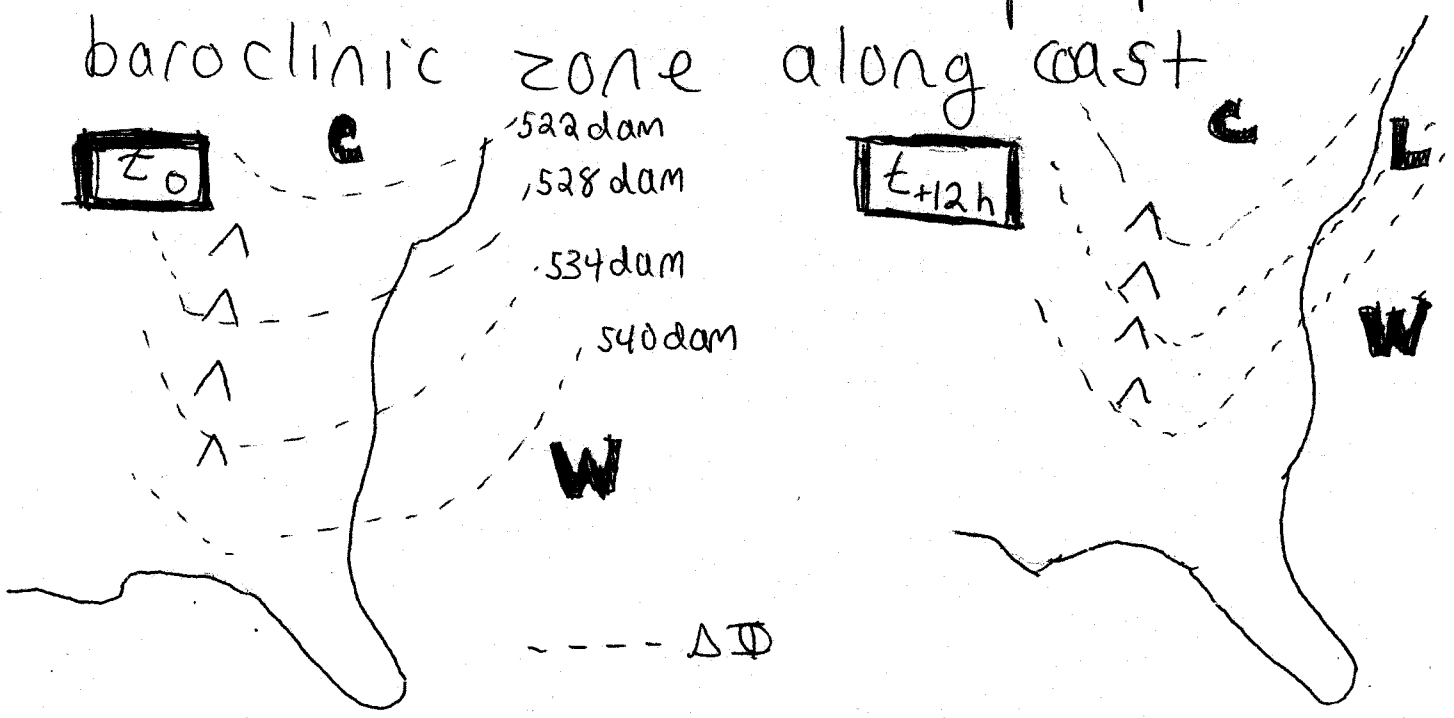 baroclinic zone along coast
t₀ C 522 dam
528 dam
534 dam
540 dam
W
---- ΔΦ
t+12h C L
W